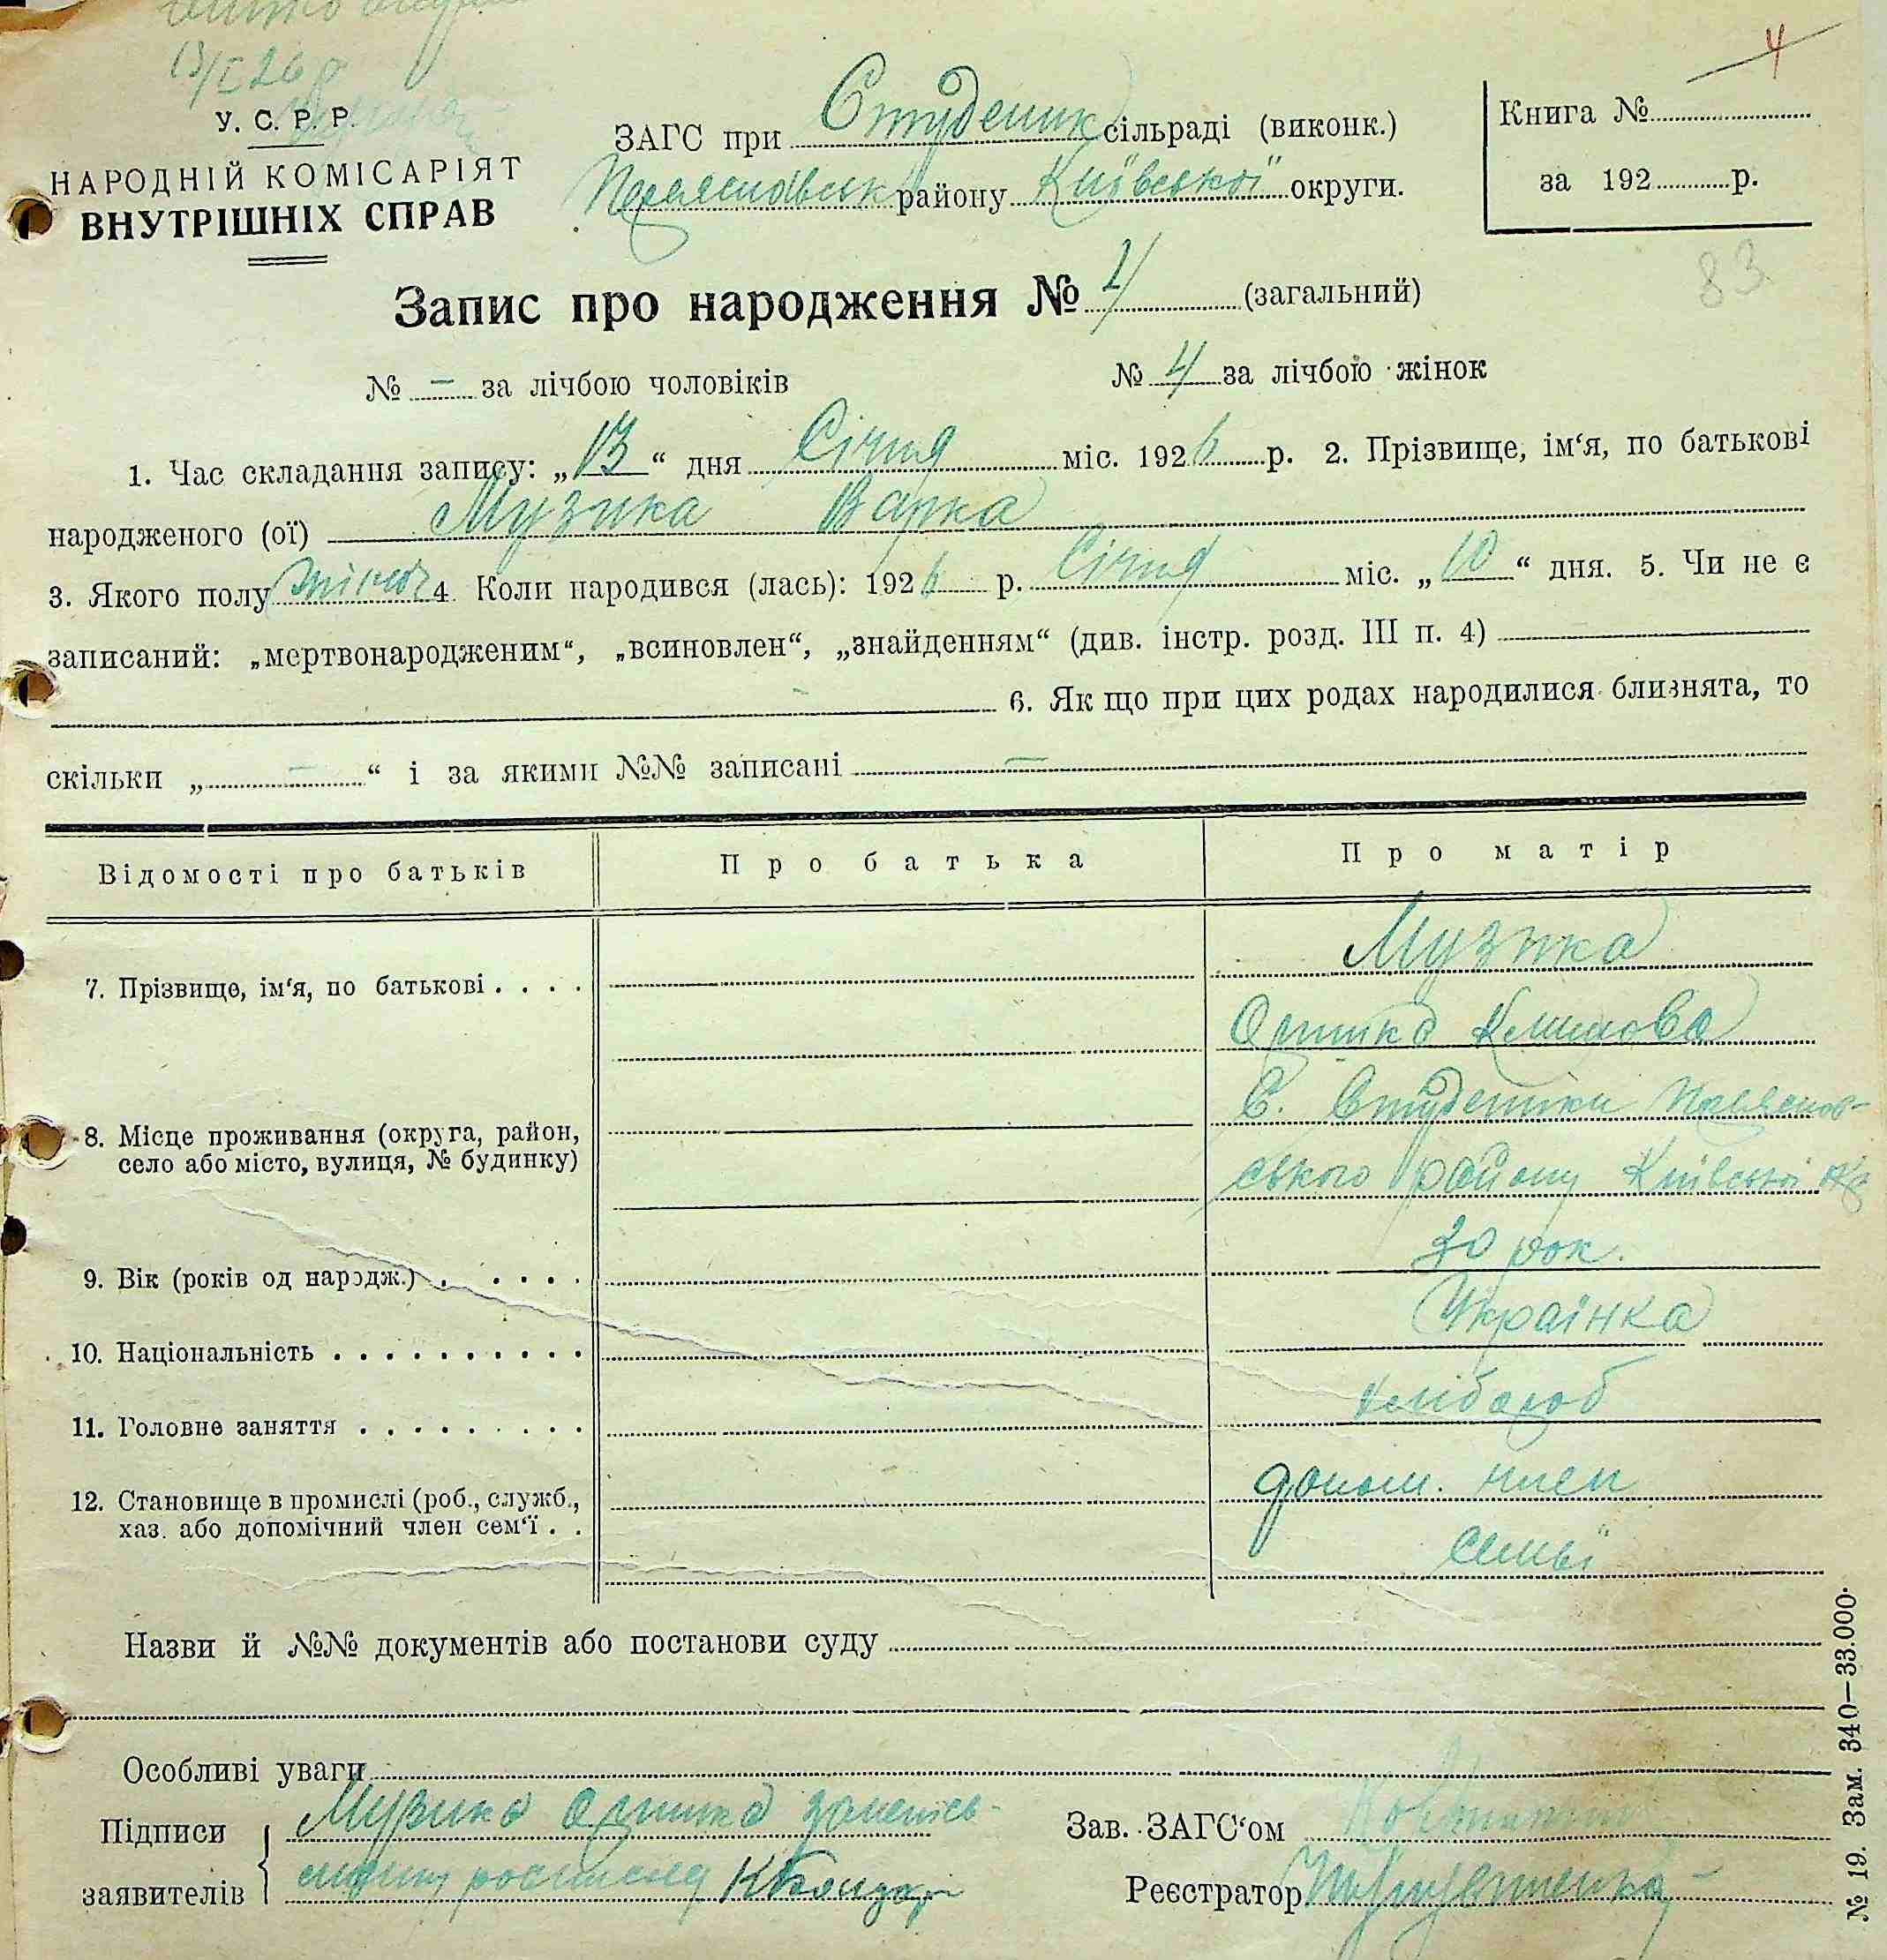 13/I 26 р
У. С. Р. Р.
НАРОДНІЙ КОМІСАРІЯТ
ВНУТРІШНІХ СПРАВ
ЗАГС при Студеник сільраді (виконк.)
Переяславськ району Київської округи.
Книга №
за 192 р.
4
83
Запис про народження № 4 (загальний)
№ — за лічбою чоловіків № 4 за лічбою жінок
1. Час складання запису: „13“ дня Січня міс. 1926 р. 2. Прізвище, ім‘я, по батькові
народженого (ої) Музика Варка
3. Якого полу жіноч 4. Коли народився (лась): 1926 р. Січня міс. „10“ дня. 5. Чи не є
записаний: „мертвонародженим“, „всиновлен“, „знайденням“ (див. інстр. розд. III п. 4)
6. Як що при цих родах народилися близнята, то
скільки „—“ і за якими №№ записані —
Відомості про батьків Про батька Про матір
7. Прізвище, ім‘я, по батькові Музика
Оришка Климова
8. Місце проживання (округа, район, село або місто, вулиця, № будинку) С. Студеники Переяслов-
ського району Київської
9. Вік (років од народж.) 30 рок.
10. Національність Українка
11. Головне заняття хлібороб
12. Становище в промислі (роб., служб., хаз. або допомічний член сем‘ї допом. член
семьї
Назви й №№ документів або постанови суду
Особливі уваги
Підписи заявителів Музика Оришка
Зав. ЗАГС‘ом
Реєстратор
№ 19. Зам. 340—33.000.